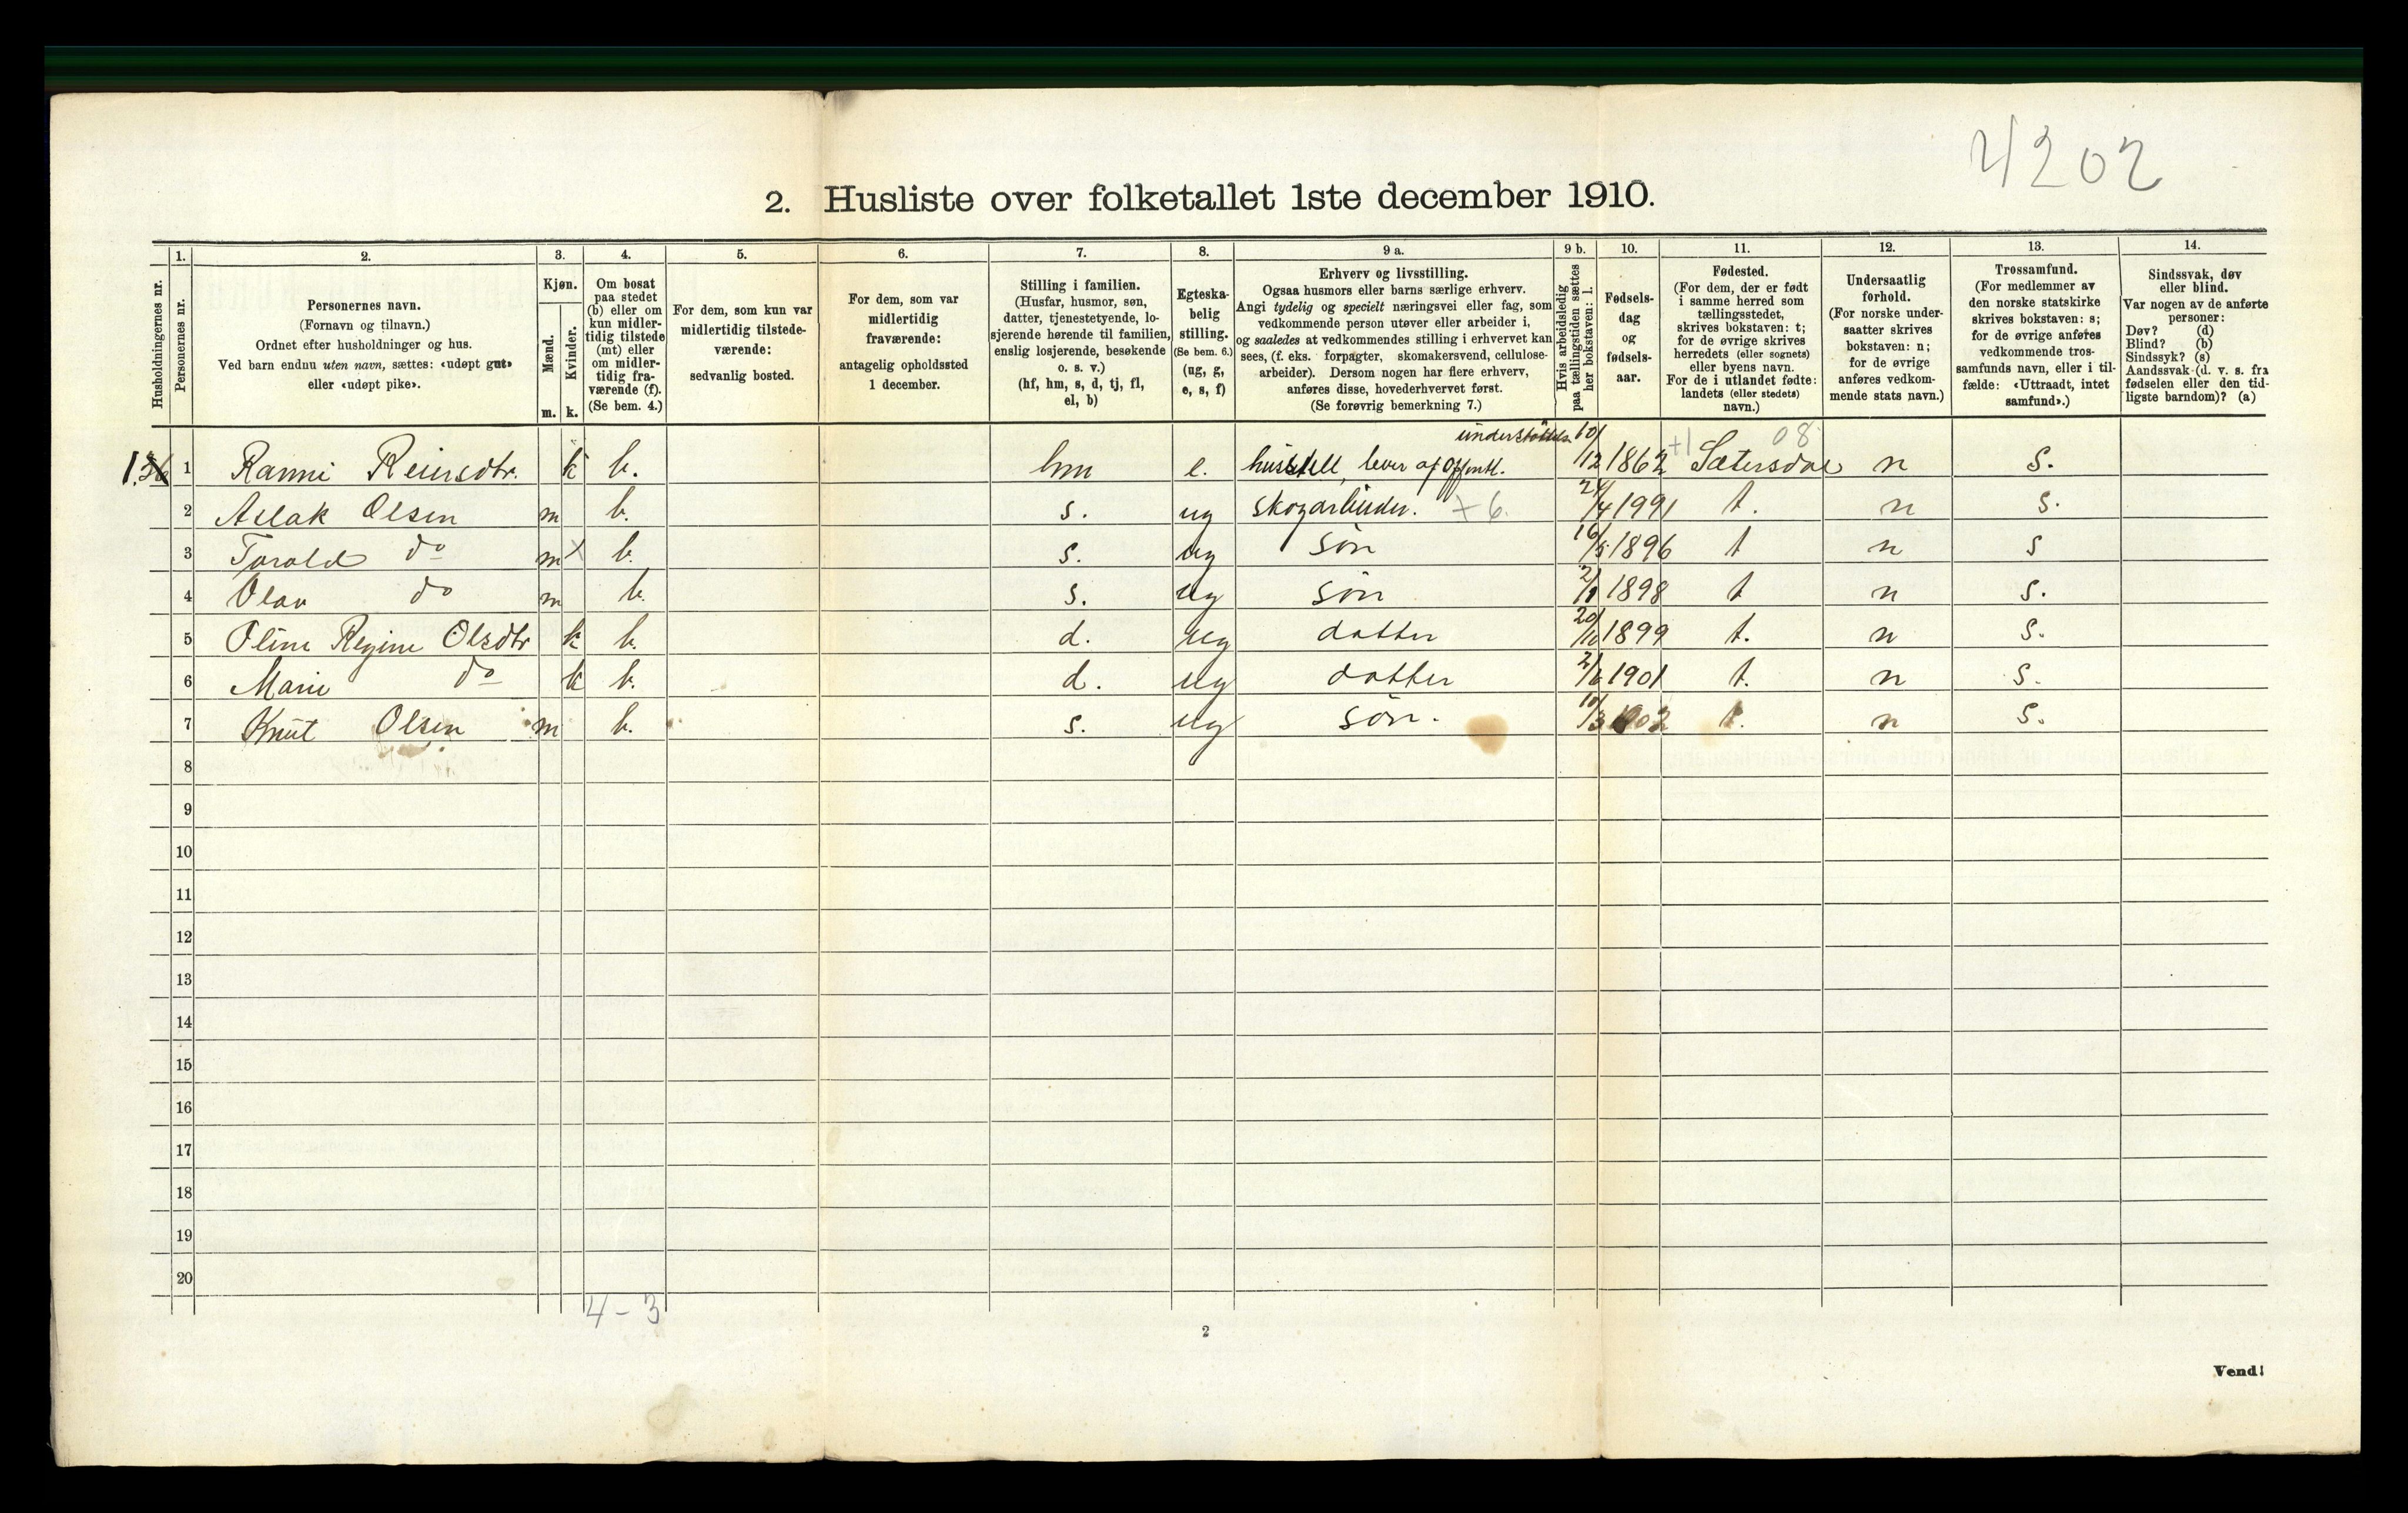 4202
2. Husliste over folketallet 1ste december 1910.
Husholdningernes nr.
1.
Personernes nr.
2.
Personernes navn.
(Fornavn og tilnavn.)
Ordnet efter husholdninger og hus.
Ved barn endnu uten navn, sættes: «udøpt gut»
eller «udøpt pike».
3.
Kjøn.
Mænd.
Kvinder.
m. k.
4.
Om bosat
paa stedet
(b) eller om
kun midler-
tidig tilstede
(mt) eller
om midler-
tidig fra-
værende (f).
(Se bem. 4.)
5.
For dem, som kun var
midlertidig tilstede-
værende:
sedvanlig bosted.
6.
For dem, som var
midlertidig
fraværende:
antagelig opholdssted
1 december.
7.
Stilling i familien.
(Husfar, husmor, søn,
datter, tjenestetyende, lo-
sjerende hørende til familien,
enslig losjerende, besøkende
o. s. v.)
(hf, hm, s, d, tj, fl,
el, b)
8.
Egteska-
belig
stilling.
(Se bem. 6.)
(ug, g,
e, s, f)
9 a.
Erhverv og livsstilling.
Ogsaa husmors eller barns særlige erhverv.
Angi tydelig og specielt næringsvei eller fag, som
vedkommende person utøver eller arbeider i,
og saaledes at vedkommendes stilling i erhvervet kan
sees, (f. eks. forpagter, skomakersvend, cellulose-
arbeider). Dersom nogen har flere erhverv,
anføres disse, hovederhvervet først.
(Se forøvrig bemerkning 7.)
9 b.
Hvis arbeidsledig
paa tællingstiden sættes
her bokstaven: l.
10.
Fødsels-
dag
og
fødsels-
aar.
11.
Fødested.
(For dem, der er født
i samme herred som
tællingsstedet,
skrives bokstaven: t;
for de øvrige skrives
herredets (eller sognets)
eller byens navn.
For de i utlandet fødte:
landets (eller stedets)
navn.)
12.
Undersaatlig
forhold.
(For norske under-
saatter skrives
bokstaven: n;
for de øvrige
anføres vedkom-
mende stats navn.)
13.
Trossamfund.
(For medlemmer av
den norske statskirke
skrives bokstaven: s;
for de øvrige anføres
vedkommende tros-
samfunds navn, eller i til-
fælde: «Uttraadt, intet
samfund».)
14.
Sindssvak, døv
eller blind.
Var nogen av de anførte
personer:
Døv? (d)
Blind? (b)
Sindssyk? (s)
Aandssvak (d. v. s. fra
fødselen eller den tid-
ligste barndom)? (a)
understøttels. +1 08
1 Ranni Reiersdtr. k b. hm e. husstell, lever af Offentl. 10/12 1862 Sætersdal n s.
2 Aslak Olsen m b. s. ug skogarbeider. +6. 24/4 1991 t. n s.
3 Torald do m x b. s. ug søn 16/5 1896 t n s
4 Olav do m b. s. ug søn 2/1 1898 t n s.
5 Oline Regine Olsdtr k b. d. ug datter 20/10 1899 t. n s.
6 Marie do k b. d. ug datter 2/6 1901 t. n s.
7 Knut Olsen m b. s. ug søn. 10/3 1902 t. n s.
8
9
10
11
12
13
14
15
16
17
18
19
20
4-3
2
Vend!